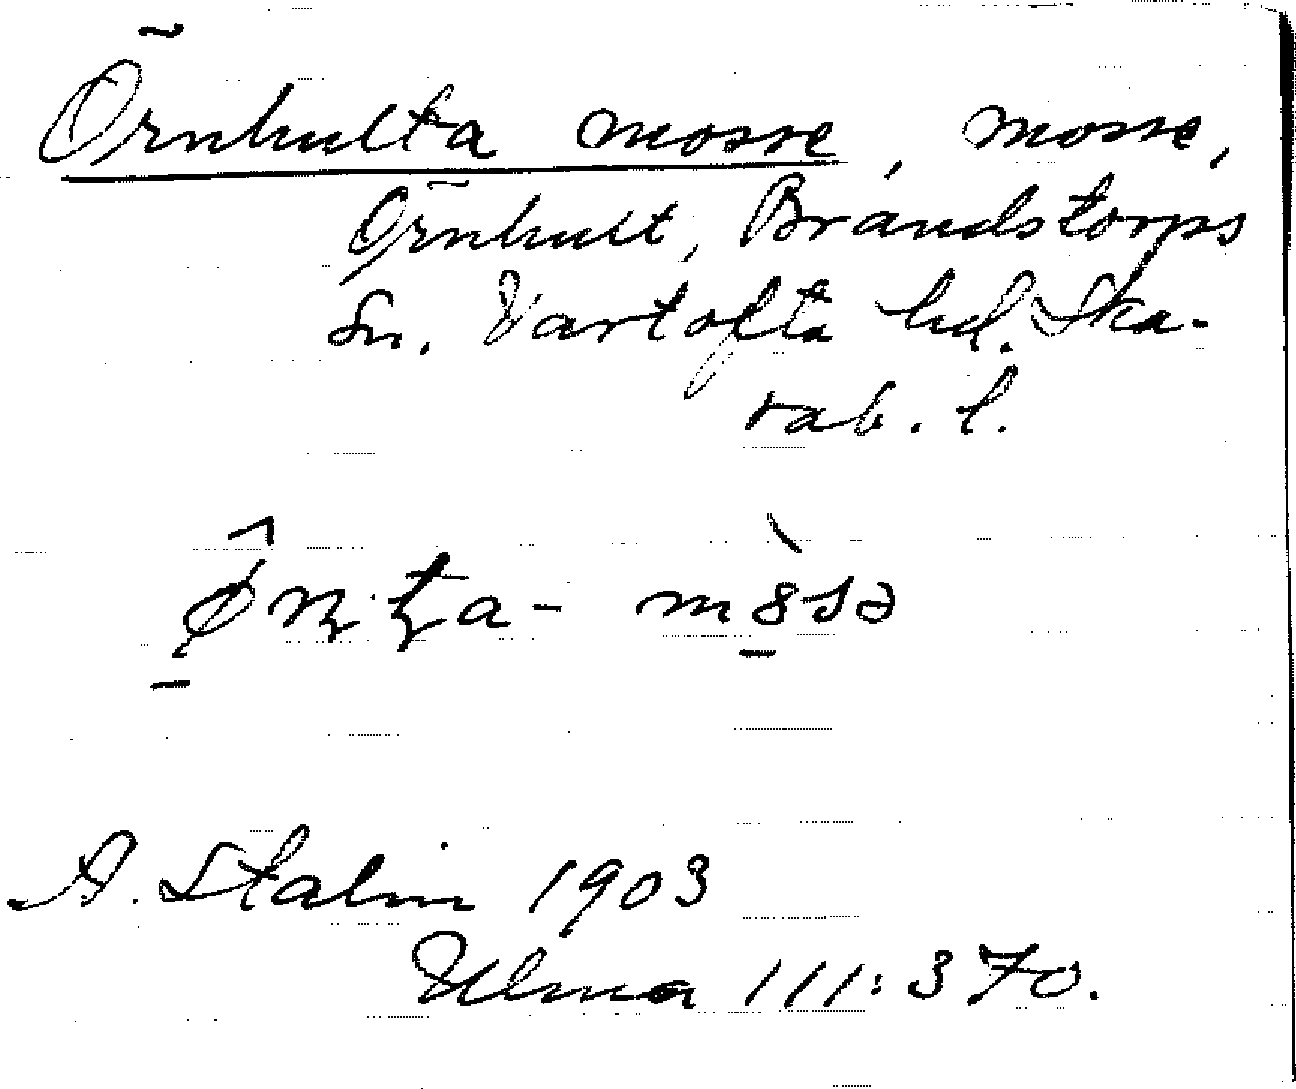 Örnhulta mosse, mosse,
Örnhult, Brandstorps
sn. Vartofta hd. Ska-
rab. l.
A. Stalin 1903
Ulma 111:370.